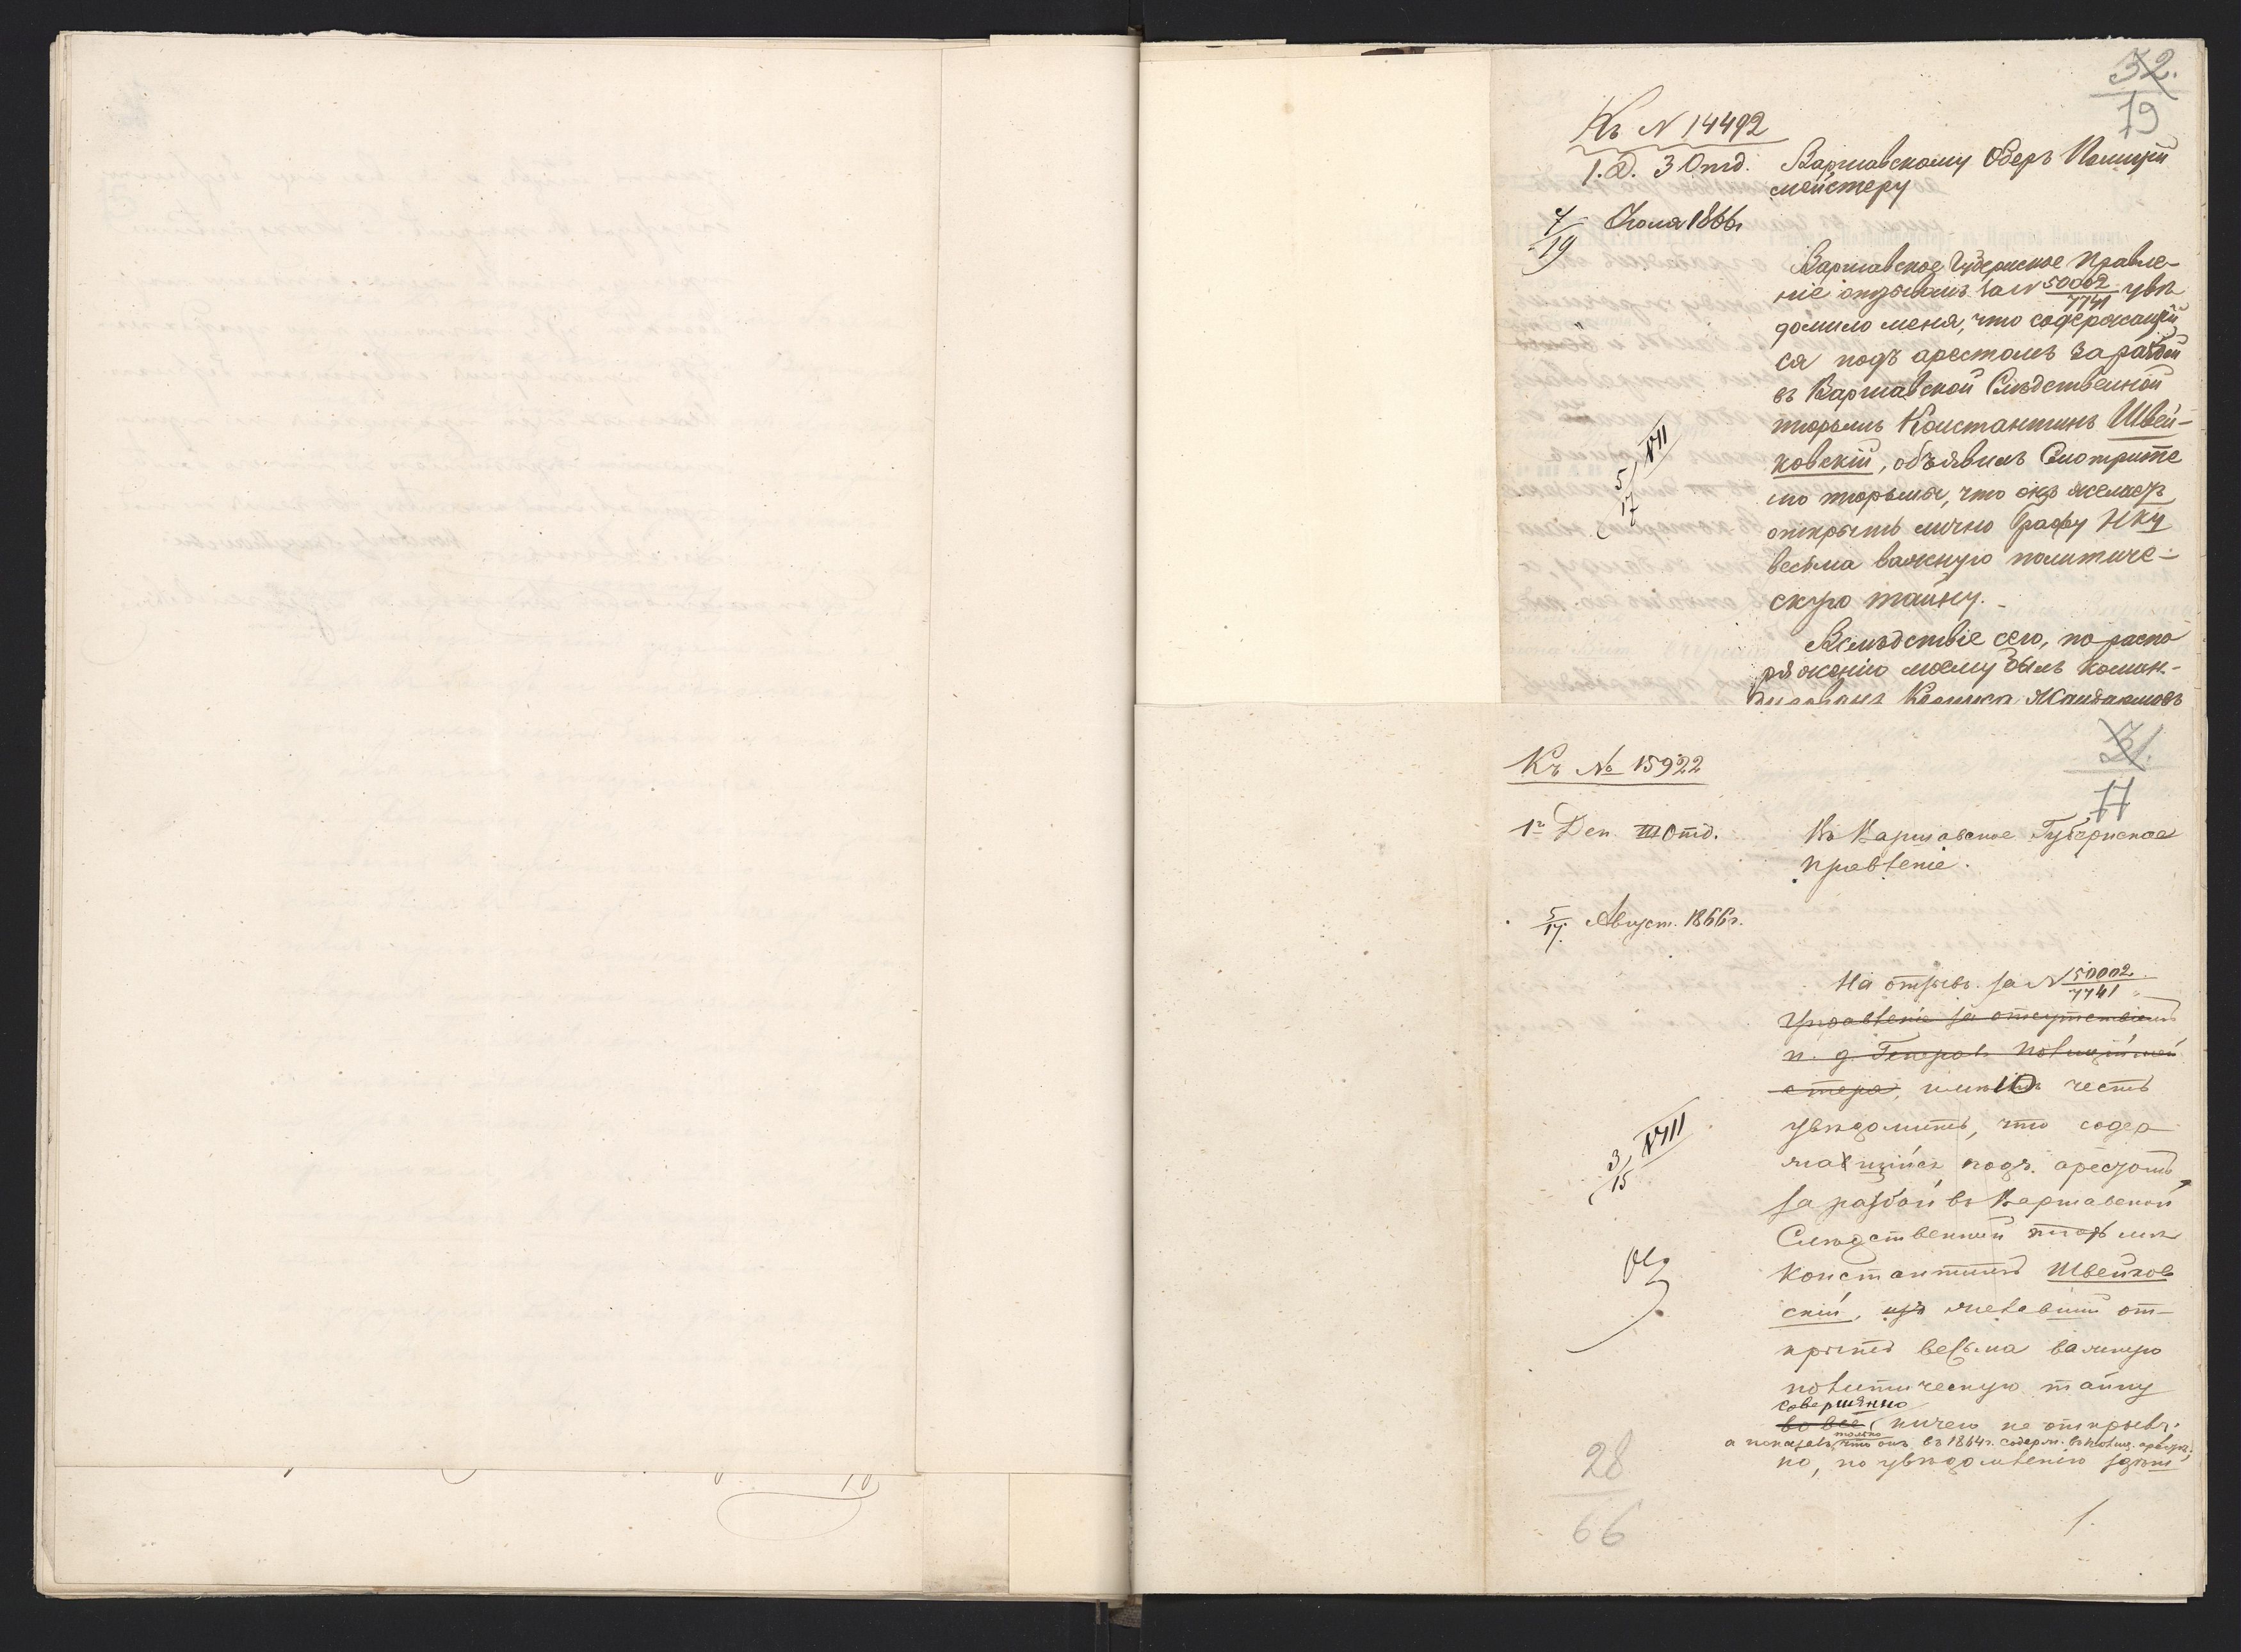 32.
19
Къ N 14492
1. Д. 3 Отд.
Варшавскому Оберъ Полицій
мейстеру
7/19 Іюля 1866г
Варшавское Губернское Правле-
ніе отзывомъ за N 50002/7741 увѣ
домило меня, что содержащій
ся подъ арестомъ за разбой
въ Варшавской Слѣдственной
тюрьмѣ Константинъ Швей-
ковскій, объявилъ Смотрите
лю тюрьмы, что онъ желаетъ
открыть лично Графу Н-ку
весьма важную политиче-
скую тайну.
Вслѣдствіе сего, по распо
ряженію моему былъ коман-
дированъ
5/17 VII
31.
17
Къ № 15922
1й Деп. III Отд.
Въ Варшавское Губернское
Правленіе.
5/17. Август. 1866г.
На отзывъ за N 150002/7741
Управленіе за отсутствіемъ
п. д. Генералъ Полиціймей
стера, имѣю честь
увѣдомить, что содер
жавшійся подъ арестомъ
за разбой въ Варшавской
Слѣдственной тюрьмѣ
Константинъ Швейков
скій, желавшій от-
крыть весьма важную
политическую тайну
совершенно
во все ничего не открылъ.
только
а показалъ, что онъ въ 1864г. содерж. въ полиц. арестѣ,
но, по увѣдомленію здѣш
3/15 VIII
28
66